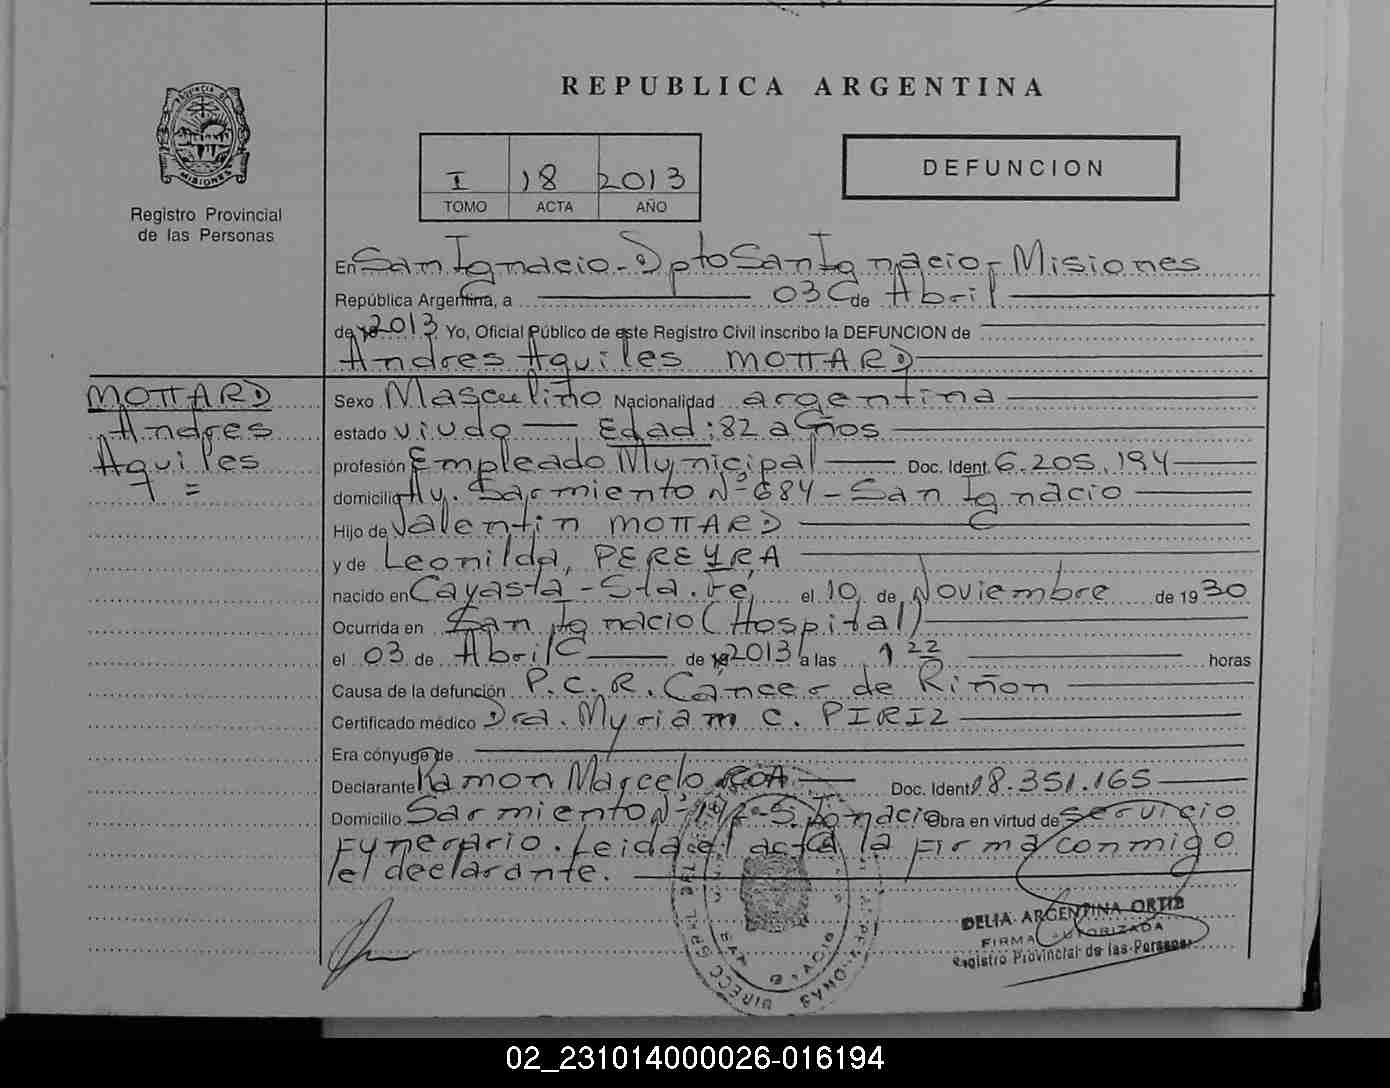 REPUBLICA ARGENTINA
PROVINCIA DE
MISIONES
Registro Provincial
de las Personas
I 18 2013
TOMO ACTA AÑO
DEFUNCION
En San Ignacio - Dpto San Ignacio - Misiones
República Argentina, a 03 de Abril
de 2013 Yo, Oficial Público de este Registro Civil inscribo la DEFUNCION de
Andres Aquiles MOTTARD
MOTTARD
Andres
Aquiles
Sexo Masculino Nacionalidad argentina
estado viudo Edad: 82 años
profesión Empleado Municipal Doc. Ident. 6.205.194
domicilio Av. Sarmiento Nº 684 - San Ignacio
Hijo de Valentin MOTTARD
y de Leonilda, PEREYRA
nacido en Cayasta - Sta. Fe, el 10 de Noviembre de 1930
Ocurrida en San Ignacio (Hospital)
el 03 de Abril de 2013 a las 1 22 horas
Causa de la defunción P.C.R. Cáncer de Riñon
Certificado médico Dra. Myriam C. PIRIZ
Era cónyuge de
Declarante Ramon Marcelo ROA Doc. Ident. 18.351.165
Domicilio Sarmiento Nº S. Ignacio Obra en virtud de servicio
Funerario. Leida el acta la firma conmigo
el declarante.
DELIA ARGENTINA ORTIZ
FIRMA AUTORIZADA
Registro Provincial de las Personas
02_231014000026-016194